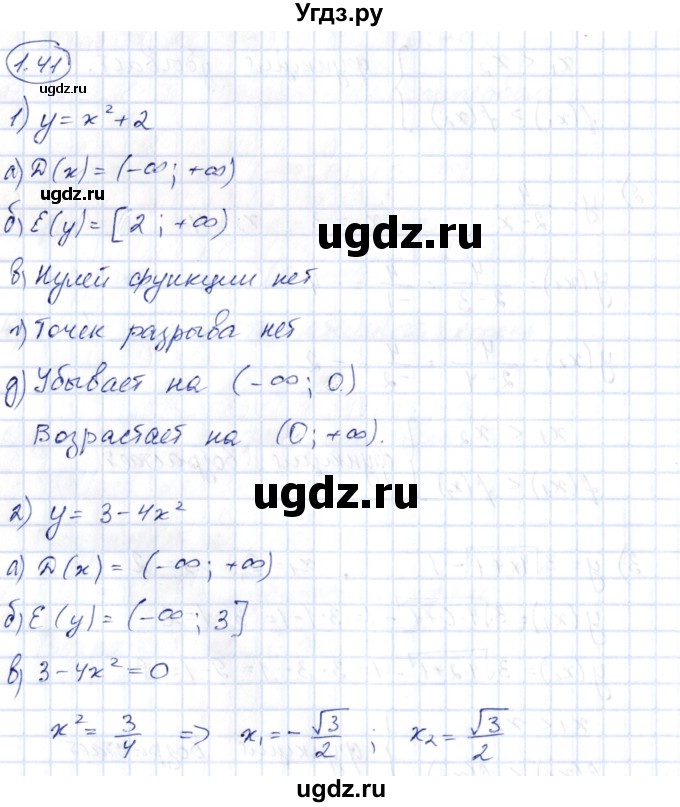 Угдз.ру
1.41
ugdz.ru
1) y = x² + 2
а) D(x) = (-∞; +∞)
ugdz.ru
б) E(y) = [2; +∞)
ugdz.ru
в) Нулей функции нет
г) Точек разрыва нет
д) Убывает на (-∞; 0)
Возрастает на (0; +∞).
ugdz.ru
2) y = 3 - 4x²
а) D(x) = (-∞; +∞)
б) E(y) = (-∞; 3]
в) 3 - 4x² = 0
ugdz.ru
x² = 3/4 => x₁ = -√3/2; x₂ = √3/2
ugdz.ru